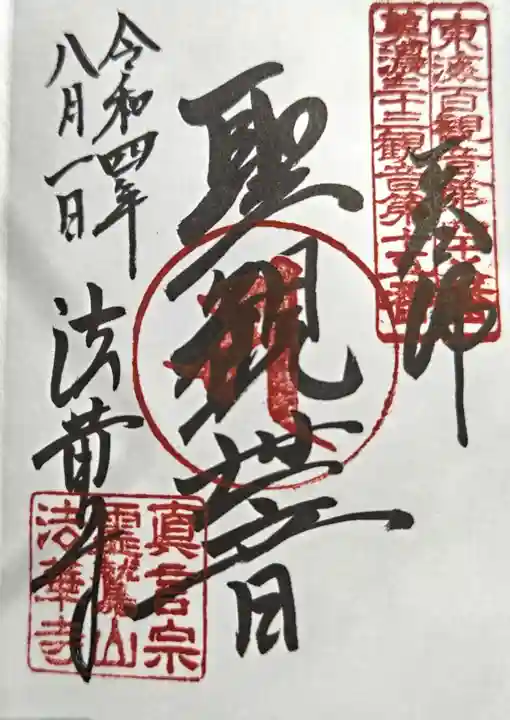 東海百観音第
美濃三十三観音第十
聖観世音
令和四年
八月一日
法華寺
真言宗
霊鷲山
法華寺